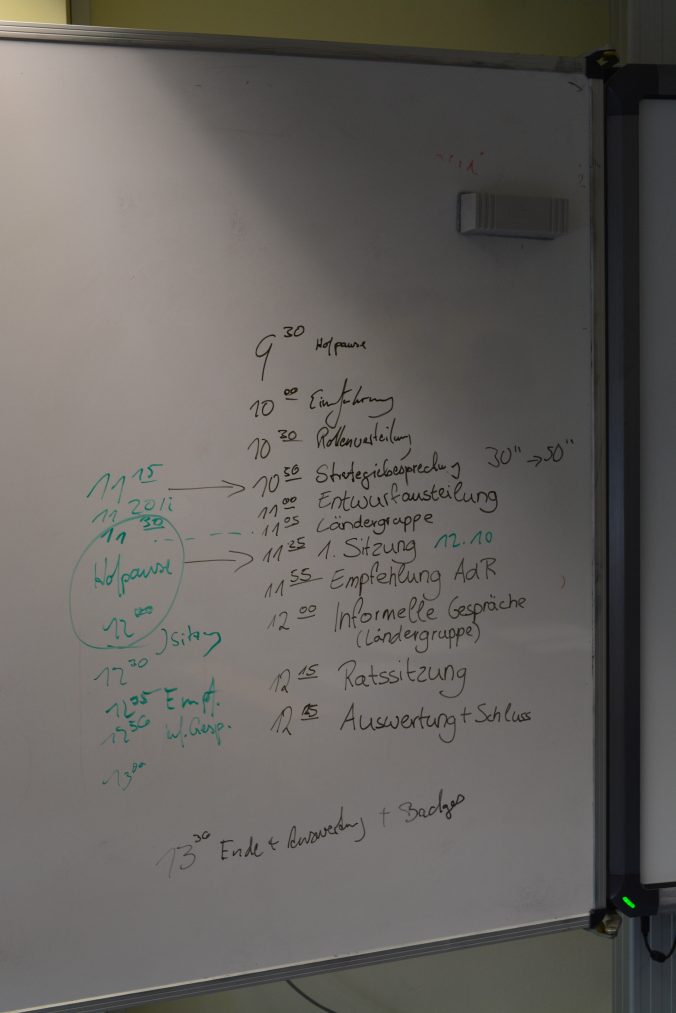 9 30 Hofpause
10 00 Einführung
10 30 Rollenverteilung
11 15 → 10 50 Strategiebesprechung 30" → 50"
11 20 11 00 Entwurfausteilung
11 30 - - - 11 05 Ländergruppe
→ 11 35 1. Sitzung 12.10
Hofpause 11 55 Empfehlung AdR
12 00 12 00 Informelle Gespräche
(Ländergruppe)
12 30 ) Sitzung
12 15 Ratssitzung
Empf.
inf. Gesp. Auswertung + Schluss
13 00
13 30 Ende + Auswertung + Badges